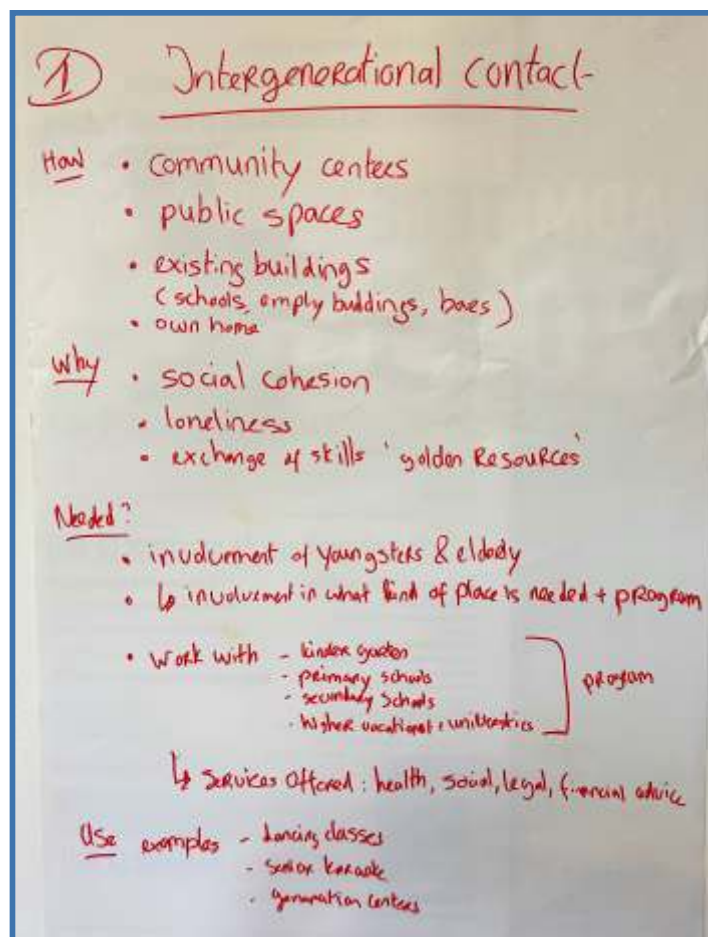 1 Intergenerational contact
How • community centers
• public spaces
• existing buildings
(schools, empty buildings, bars)
• own home
Why • social cohesion
• loneliness
• exchange of skills 'golden Resources'
Needed?
• involvement of youngsters & elderly
• ↳ involvement in what kind of place is needed + program
• work with - kinder garten
- primary schools
- secundary schools
- higher vocational + universities
program
↳ Services offered: health, social, legal, financial advice
Use examples - dancing classes
- senior karaoke
- generation centers